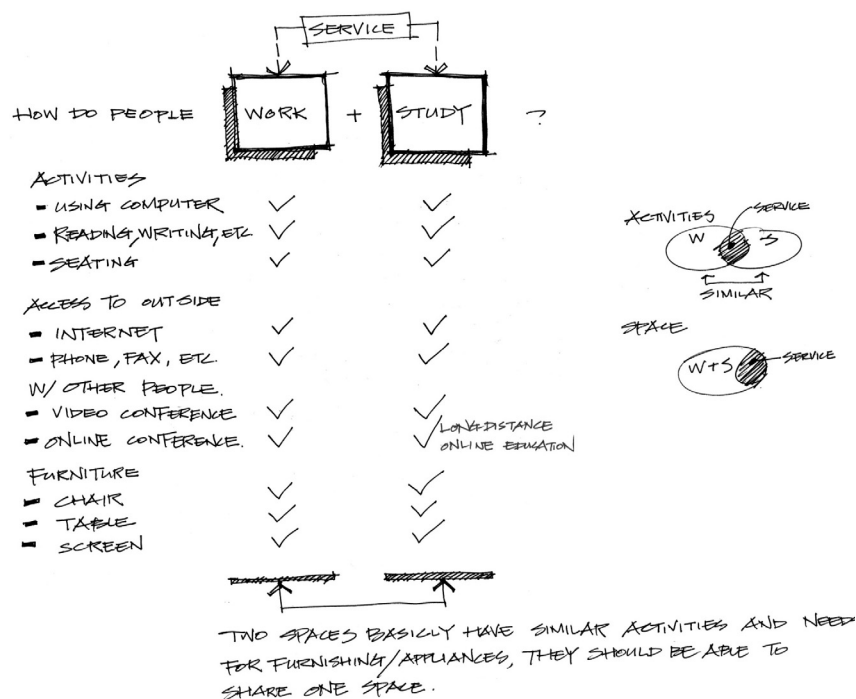 SERVICE
HOW DO PEOPLE WORK + STUDY ?
ACTIVITIES
- USING COMPUTER
- READING, WRITING, ETC
- SEATING
ACCESS TO OUTSIDE
- INTERNET
- PHONE, FAX, ETC.
W/ OTHER PEOPLE.
- VIDEO CONFERENCE
- ONLINE CONFERENCE.
LONG-DISTANCE
ONLINE EDUCATION
FURNITURE
- CHAIR
- TABLE
- SCREEN
ACTIVITIES
SERVICE
W S
SIMILAR
SPACE
W+S
SERVICE
TWO SPACES BASICLY HAVE SIMILAR ACTIVITIES AND NEED
FOR FURNISHING/APPLIANCES, THEY SHOULD BE ABLE TO
SHARE ONE SPACE.